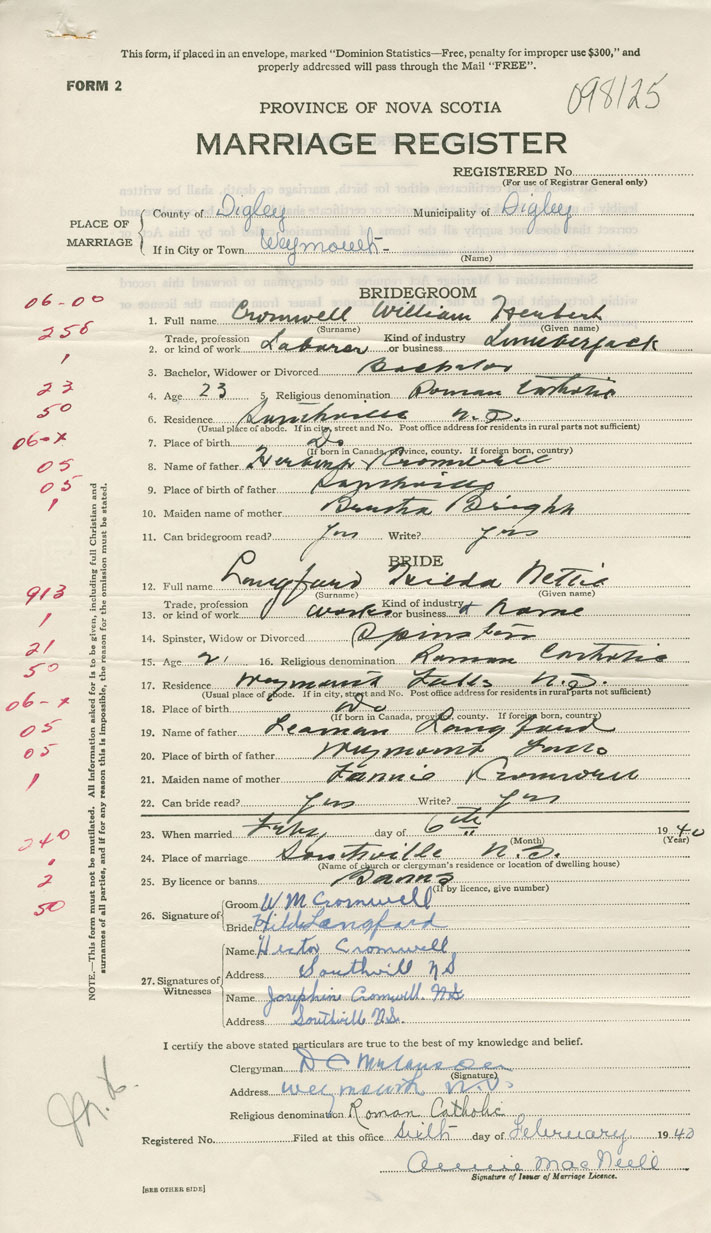 This form, if placed in an envelope, marked "Dominion Statistics—Free, penalty for improper use $300," and
properly addressed will pass through the Mail "FREE".
FORM 2
098125
PROVINCE OF NOVA SCOTIA
MARRIAGE REGISTER
REGISTERED No.
(For use of Registrar General only)
PLACE OF MARRIAGE
County of Digby Municipality of Digby
If in City or Town Weymouth
(Name)
BRIDEGROOM
06-00
1. Full name Cromwell William Herbert
(Surname) (Given name)
256
2. Trade, profession or kind of work Laborer Kind of industry or business Lumberjack
1
3. Bachelor, Widower or Divorced Bachelor
23
4. Age 23 5. Religious denomination Roman Catholic
50
6. Residence Southville N.S.
(Usual place of abode. If in city, street and No. Post office address for residents in rural parts not sufficient)
06-x
7. Place of birth Do
(If born in Canada, province, county. If foreign born, country)
05
8. Name of father Herbert Cromwell
05
9. Place of father Southville
1
10. Maiden name of mother Bertha Bright
11. Can bridegroom read? Yes Write? Yes
BRIDE
913
12. Full name Langford Hilda Nettie
(Surname) (Given name)
1
13. Trade, profession or kind of work works Kind of industry or business at Home
14. Spinster, Widow or Divorced Spinster
21
15. Age 21 16. Religious denomination Roman Catholic
50
17. Residence Weymouth Falls N.S.
(Usual place of abode. If in city, street and No. Post office address for residents in rural parts not sufficient)
06-x
18. Place of birth Do
(If born in Canada, province, county. If foreign born, country)
05
19. Name of father Leaman Langford
05
20. Place of birth of father Weymouth Falls
1
21. Maiden name of mother Fannie Cromwell
22. Can bride read? Yes Write? Yes
240
23. When married Feby day of 6th 1940
(Month) (Year)
24. Place of marriage Southville N.S.
(Name of church or clergyman's residence or location of dwelling house)
2
25. By licence or banns Banns
(If by licence, give number)
50
26. Signature of
Groom W M Cromwell
Bride Hilda Langford
27. Signatures of Witnesses
Name Hector Cromwell
Address Southvill NS
Name Josephine Cromwell NS
Address Southville N.S.
NOTE.—This form must not be mutilated. All information asked for is to be given, including full Christian and
surnames of all parties, and if for any reason this is impossible, the reason for the omission must be stated.
I certify the above stated particulars are true to the best of my knowledge and belief.
Clergyman
(Signature)
Address Weymouth N.S.
Religious denomination Roman Catholic
Registered No. Filed at this office Sixth day of February 1940
Annie MacNeill
Signature of Issuer of Marriage Licence.
[SEE OTHER SIDE]